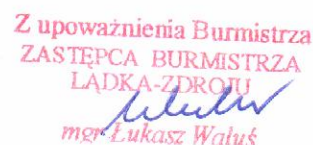 Z upoważnienia Burmistrza
ZASTĘPCA BURMISTRZA
LĄDKA-ZDROJU
mgr Łukasz Waluś